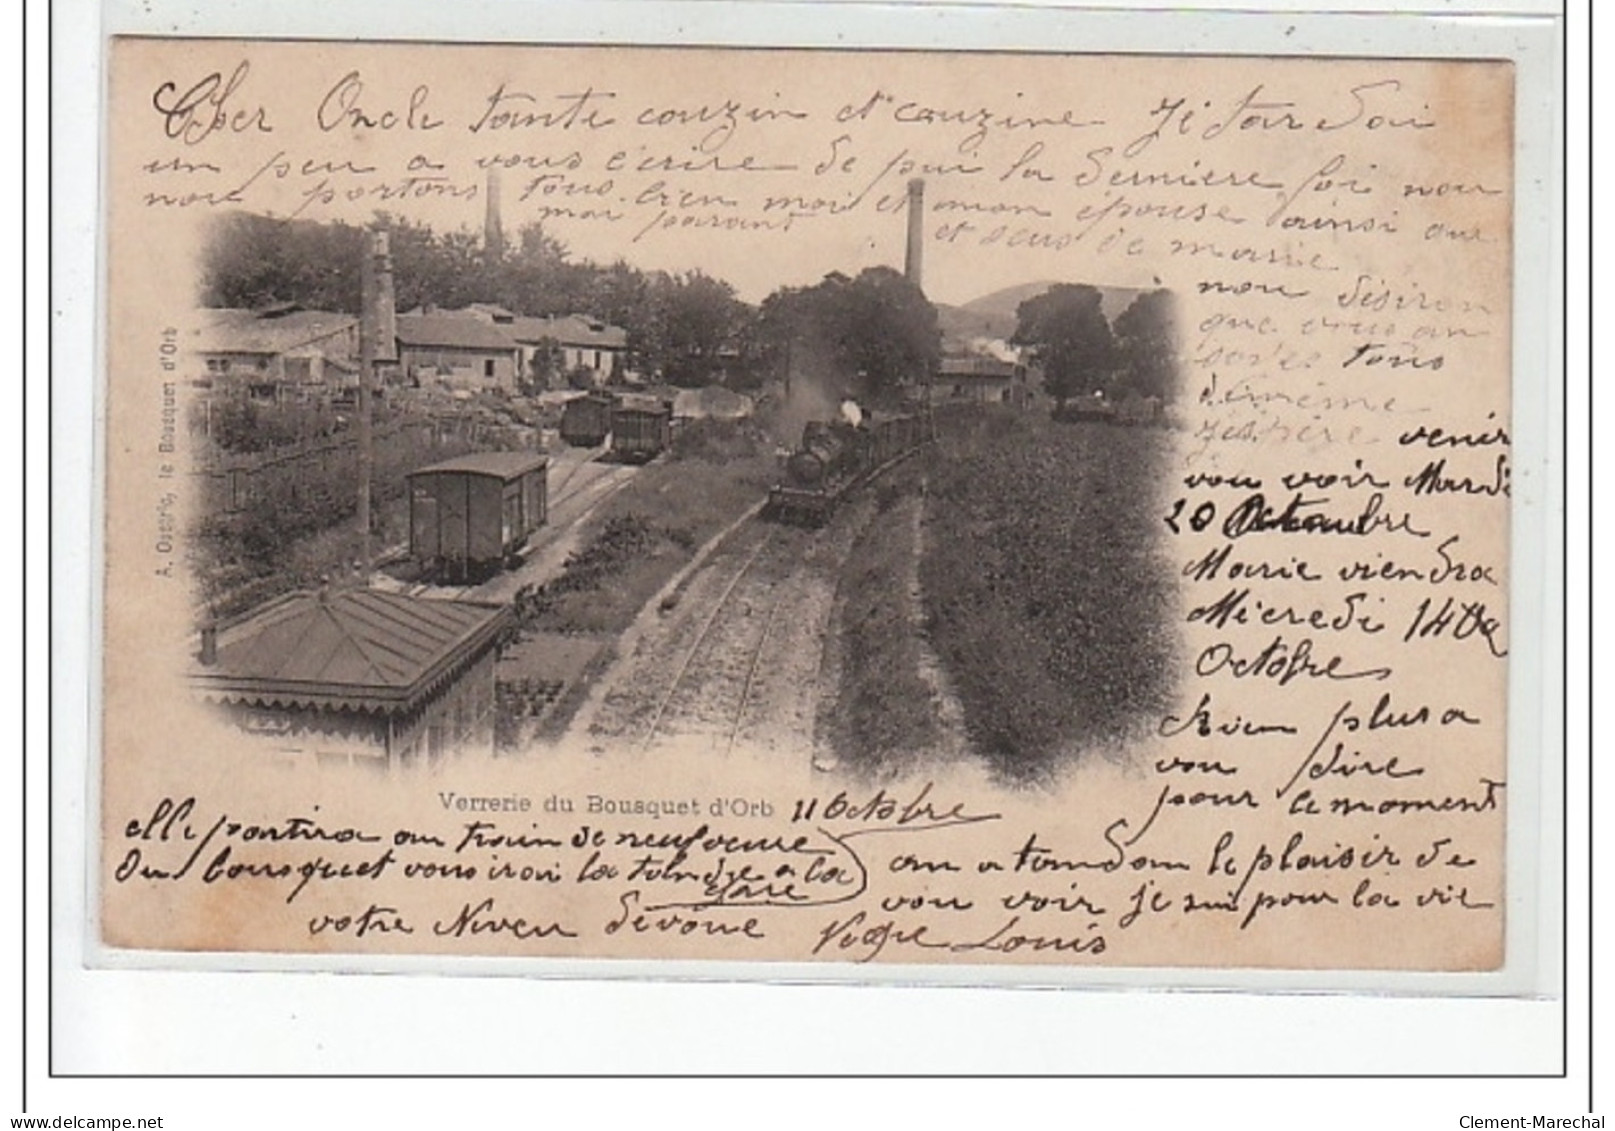 Cher Oncle tante couzin et couzine Ji tardai
un peu a vous écrire de pui la derniere foi nou
nou portons tous bien moi et mon épouse ainsi que
moi parant et seus de marie
nou désiron
que vous an
soi'ez tous
de même
J'éspère venir
vou voir Mardi
20 Octombre
Marie viendra
Mécredi 14
Octobre
Rien plus a
vou dire
pour le moment
A. Oustric, le Bousquet d'Orb
Verrerie du Bousquet d'Orb 11 Octobre
elle partira au train de neuf oeure
Du Bousquet vous irai la tandre a la
gare
an atandan le plaisir de
vou voir je sui pour la vie
votre Neveu dévoué Louis
Clement-Marechal
delcampe.net